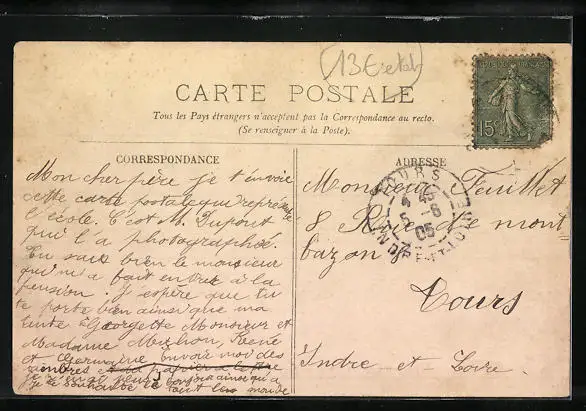 13 Eretat
CARTE POSTALE
Tous les Pays étrangers n'acceptent pas la Correspondance au recto.
(Se renseigner à la Poste).
RÉPUBLIQUE FRANÇAISE
15c
CORRESPONDANCE
Mon cher père je t'envoie
cette carte postale qui représente
l'école. C'est M. Dupont
qui l'a photographiée.
Tu sais bien le monsieur
qui m'a fait entrer à la
pension. J'espère que tu
te porte bien ainsi que ma
tante Georgette Monsieur et
Madame Michon, René
et Germaine Envoie moi des
timbres et du papier à lettre
bonsoir ainsi qu'a
tout le monde
ADRESSE
Monsieur Feuillet
8 Rue de mont
bazon
Tours
Indre et Loire.
TOURS
5 -6
05
INDRE-ET-LOIRE